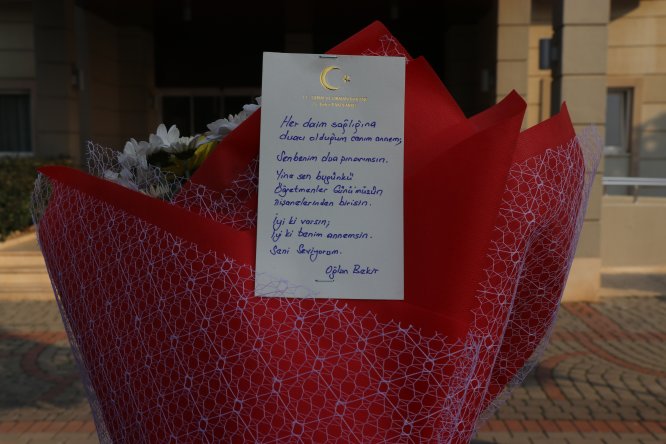 Her daim sağlığına
duacı olduğum canım annem;
Senbenim dua pınarımsın.
Yine sen bugünkü
Öğretmenler Günü'müzün
nişanelerinden birisin.
İyi ki varsın;
İyi ki benim annemsin.
Seni Seviyorum.
Oğlun Bekir